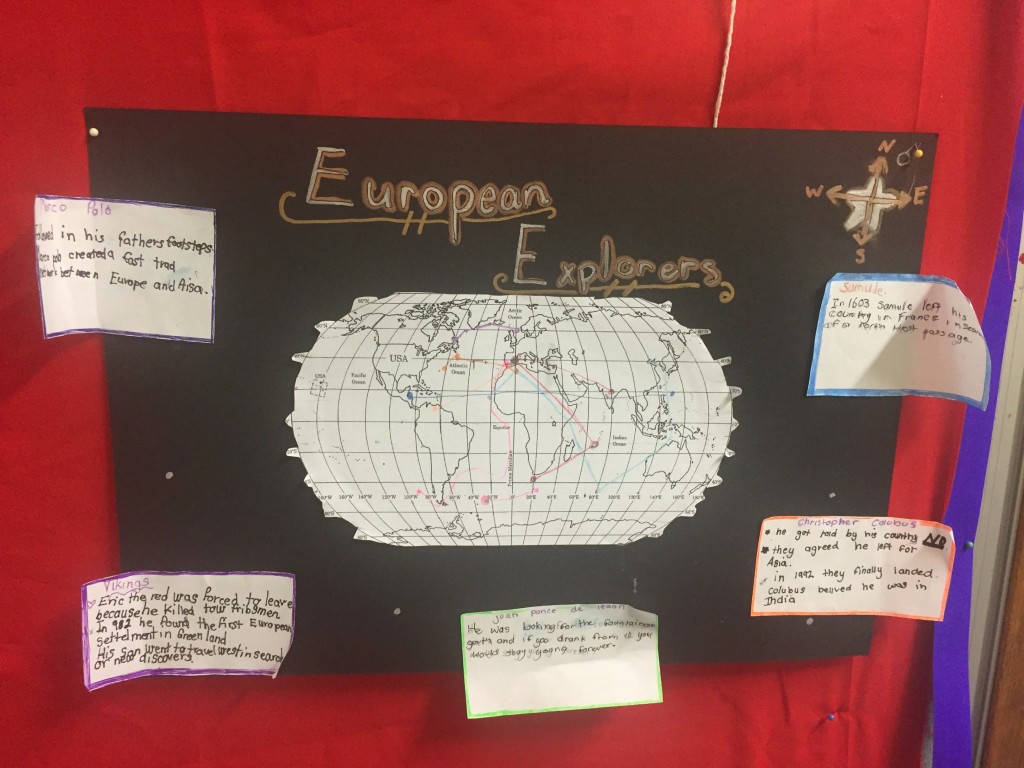 European
Explorers
N
W E
S
Polo
in his fathers footsteps
created a fast trad
between Europe and Aisa.
Samule.
In 1603 Samule left his
country in France in
of a North West passage
USA
USA
Pacific
Ocean
Atlantic
Ocean
Arctic
Ocean
Equator
Prime Meridian
Indian
Ocean
Vikings
Eric the red was forced to leave
because he killed tow tribsmen
In 982 he found the first European
settelment in Green land
His son went to travel west in search
or new discovers.
juan ponce de leaon
He was looking for the
and if you drank from it you
would stay young forever.
Christopher Colubus
he got told by his country NO
they agreed he left for
Asia.
in 1992 they finally landed.
Colubus belived he was in
India